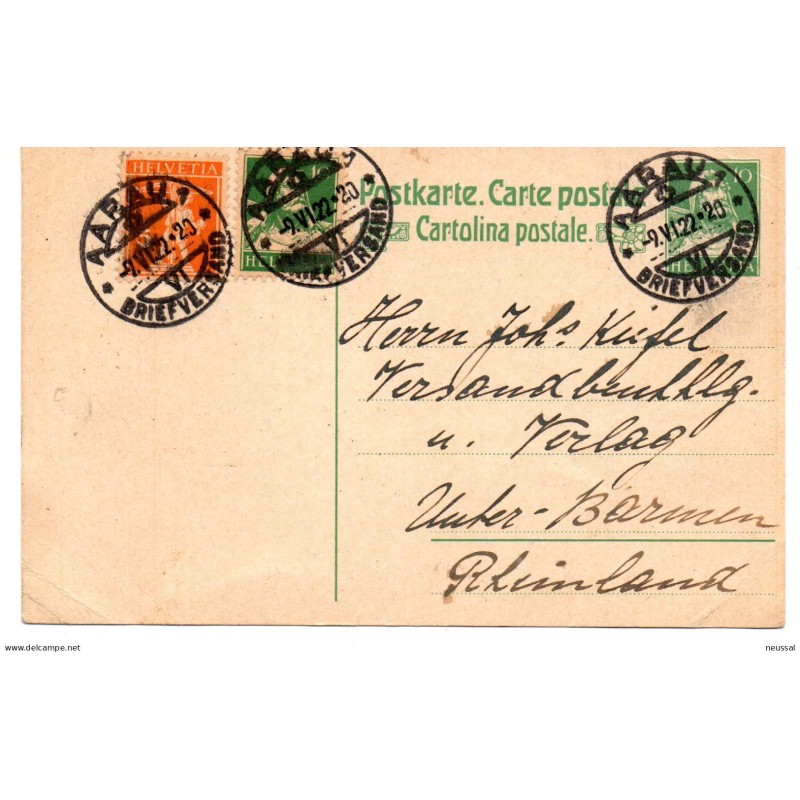 HELVETIA
10
HELVETIA
AARAU 1
-9.VI.22.-20
VI
BRIEFVERSAND
AARAU 1
-9.VI.22.-20
VI
BRIEFVERSAND
Postkarte. Carte postale
Cartolina postale.
10
HELVETIA
AARAU 1
-9.VI.22.-20
VI
BRIEFVERSAND
Herrn Johs Kiefel
Versandbuchhlg.
u. Verlag
Unter-Barmen
Rheinland
www.delcampe.net
neussal